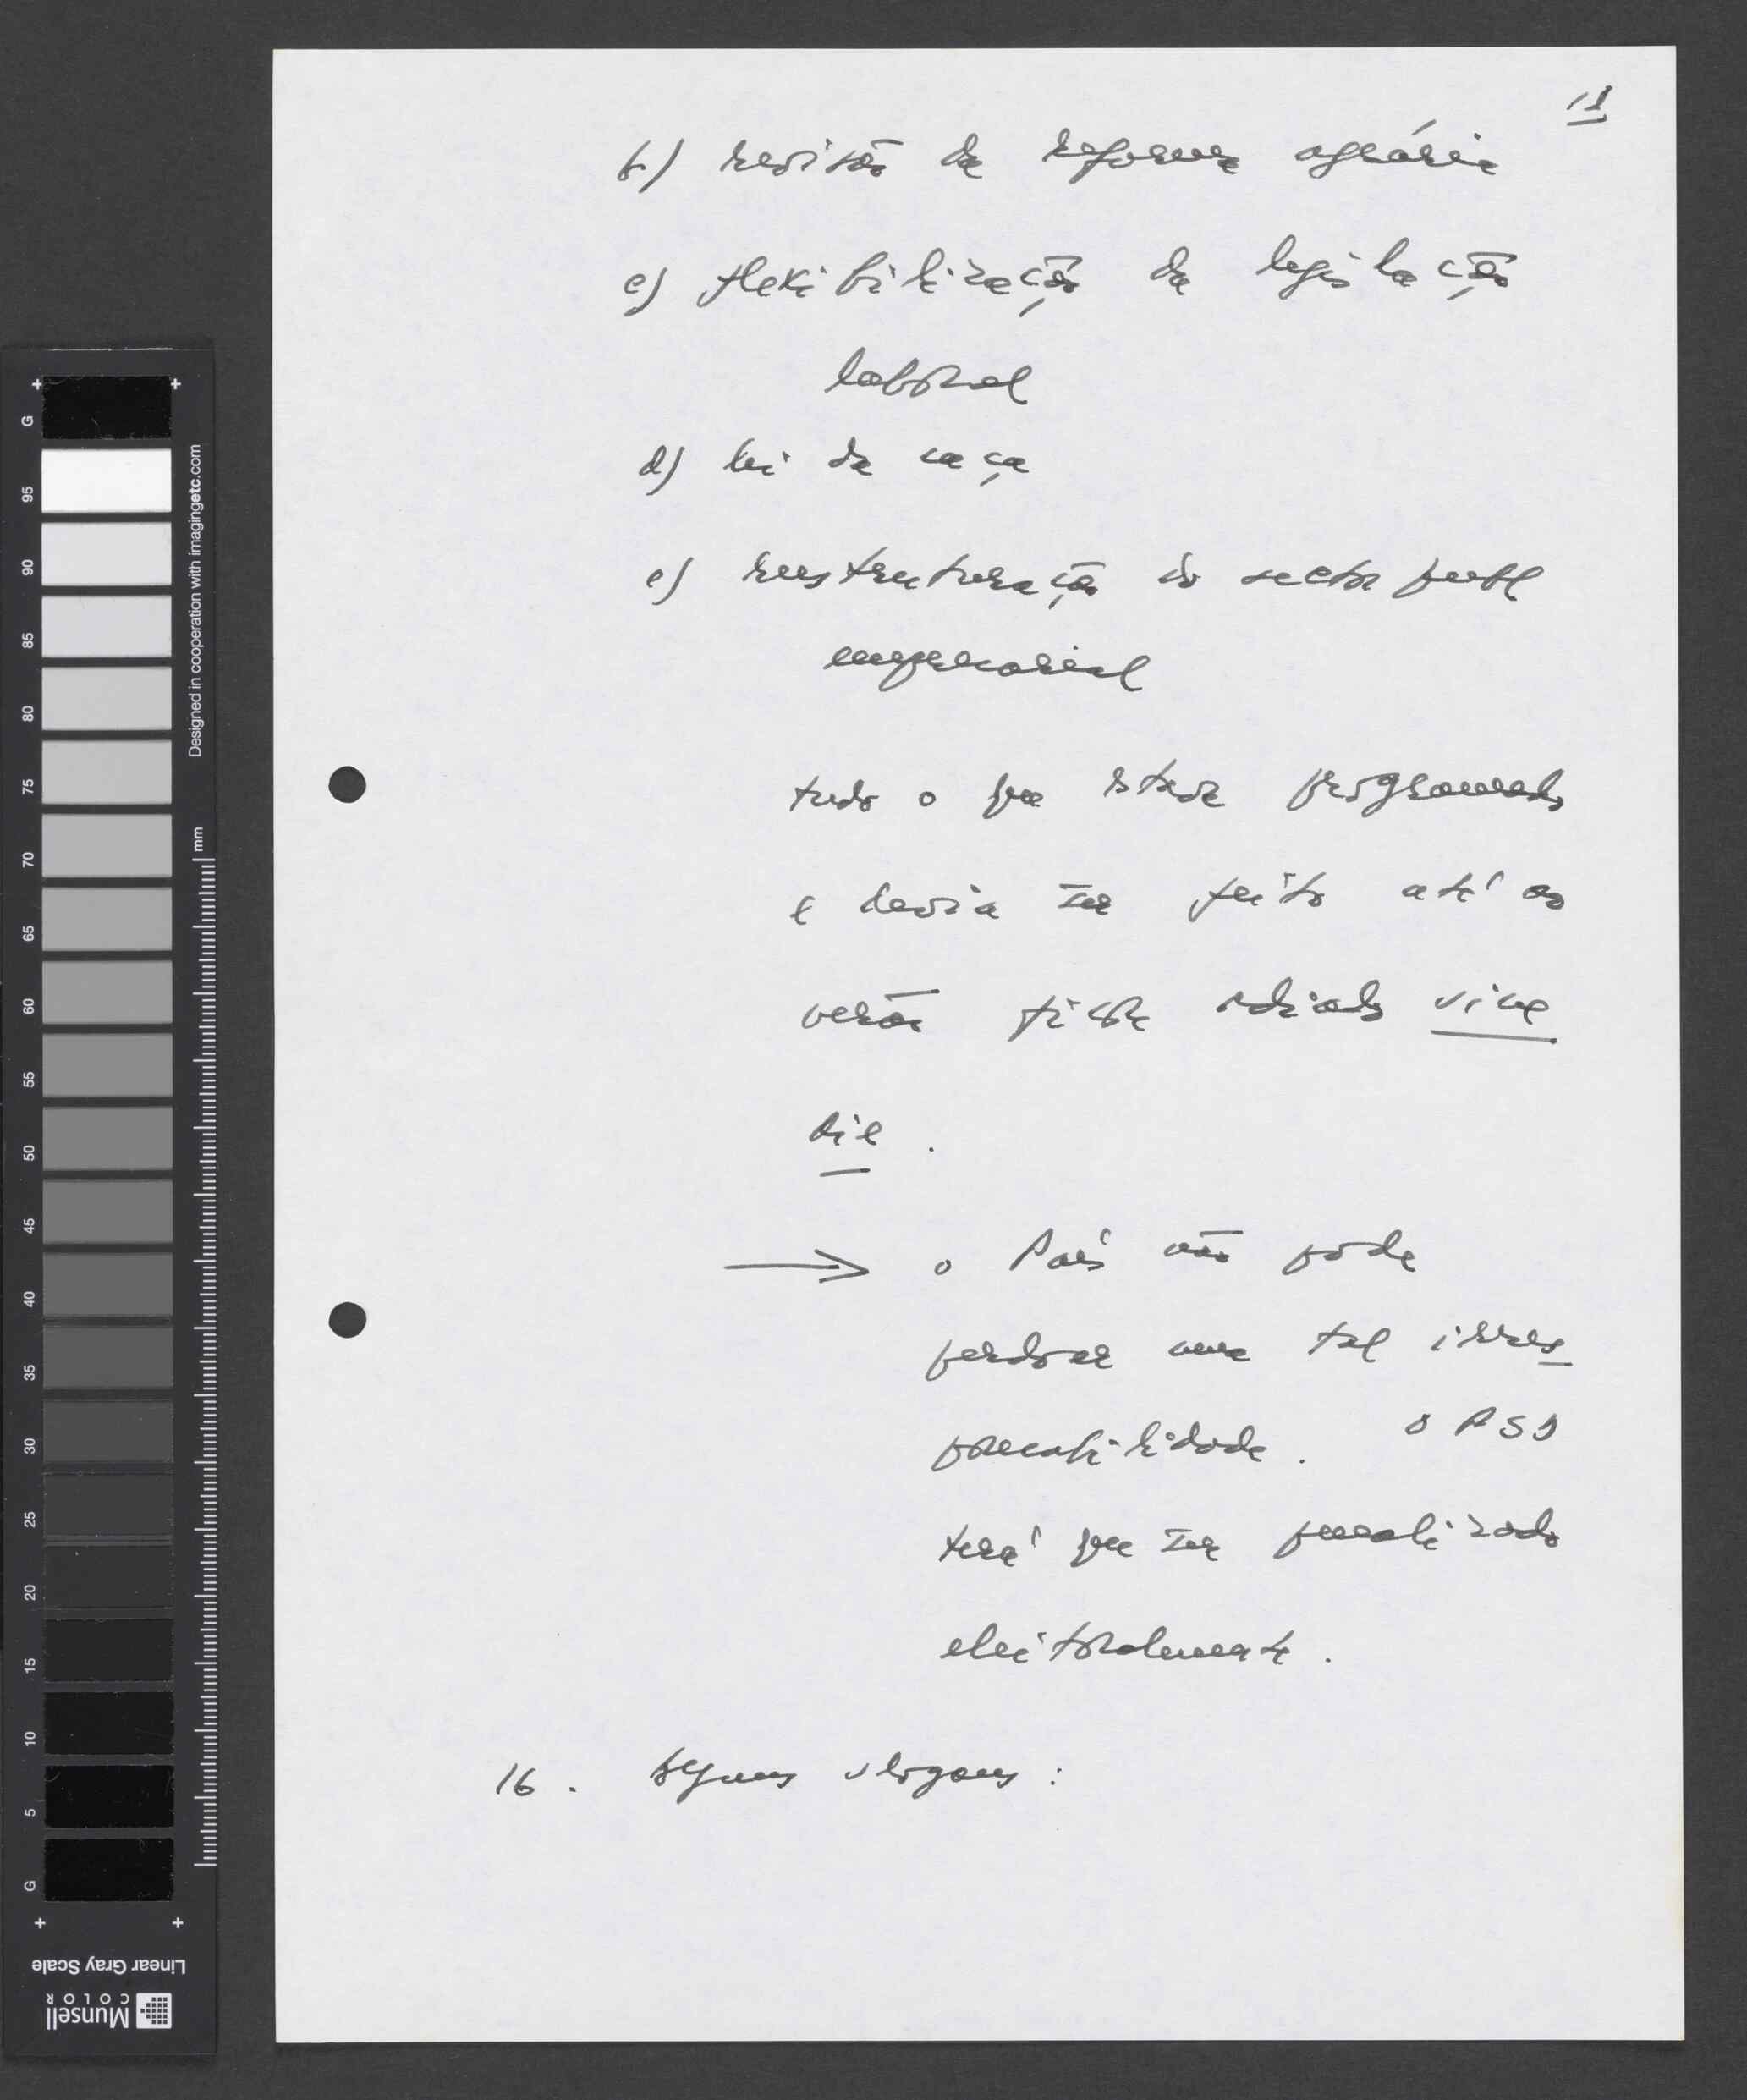 11
b) revisão da reforma agrária
c) flexibilização da legislação
laboral
d) lei da caça
e) reestruturação do sector publ
empresarial
tudo o que estava programado
e devia ser feito até ao
verão ficou adiado sine
die.
→ o País não pode
perdoar uma tal irres_
ponsabilidade. O PSD
terá que ser penalizado
eleitoralmente.
16. Alguns slogans:
G 95 90 85 80 75 70 65 60 55 50 45 40 35 30 25 20 15 10 5 G
Designed in cooperation with imagingetc.com
mm
Linear Gray Scale
Munsell
COLOR